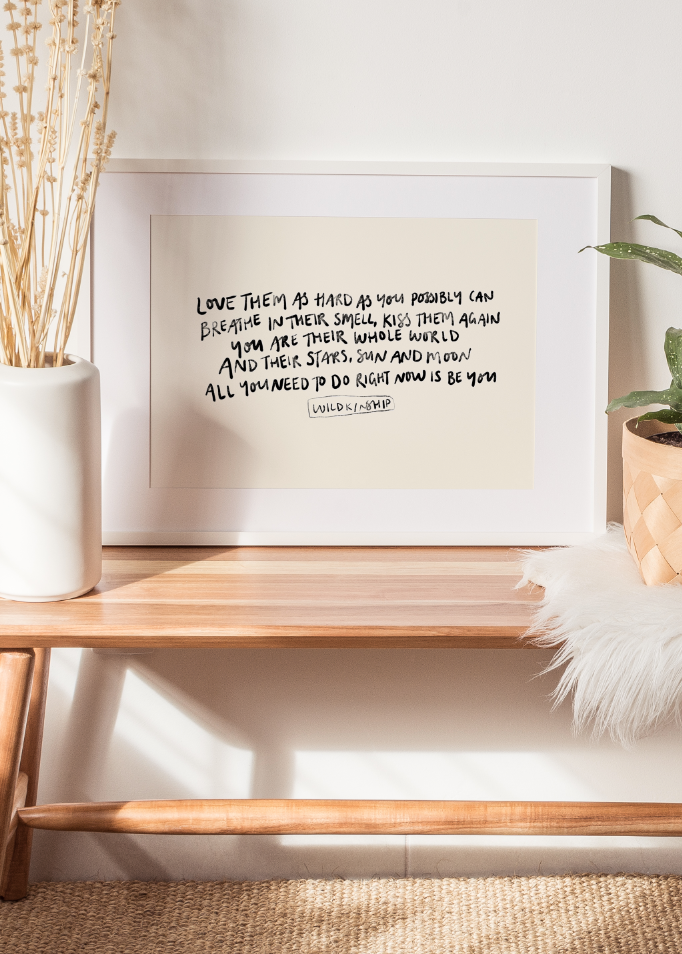 LOVE THEM AS HARD AS YOU POSSIBLY CAN
BREATHE IN THEIR SMELL, KISS THEM AGAIN
YOU ARE THEIR WHOLE WORLD
AND THEIR STARS, SUN AND MOON
ALL YOU NEED TO DO RIGHT NOW IS BE YOU
WILDKINSHIP